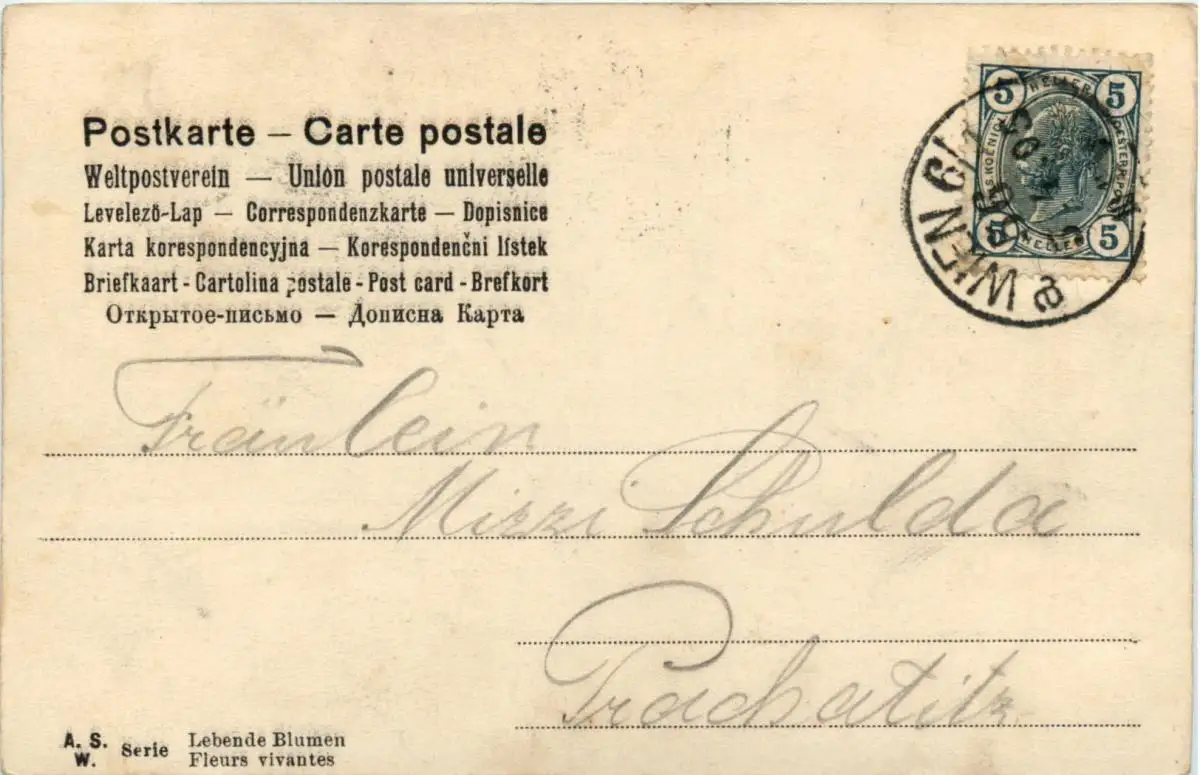 Postkarte — Carte postale
Weltpostverein — Union postale universelle
Levelező-Lap — Correspondenzkarte — Dopisnice
Karta korespondencyjna — Korespondenčni lístek
Briefkaart - Cartolina postale - Post card - Brefkort
Открытое-письмо — Дописна Карта
5 HELLER 5
5 HELLER 5
WIEN 6/1
Fräulein
Mizzi Schulda
Prachatitz
A. S. W. Serie Lebende Blumen
Fleurs vivantes